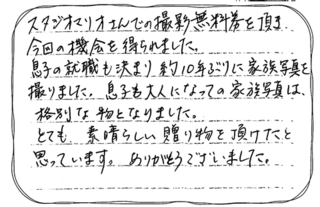 スタジオマリオさんでの撮影無料券を頂き
今回の機会を得られました。
息子の就職も決まり約10年ぶりに家族写真を
撮りました。息子も大人になっての家族写真は、
格別な物となりました。
とても 素晴らしい贈り物を頂けたと
思っています。ありがとうございました。